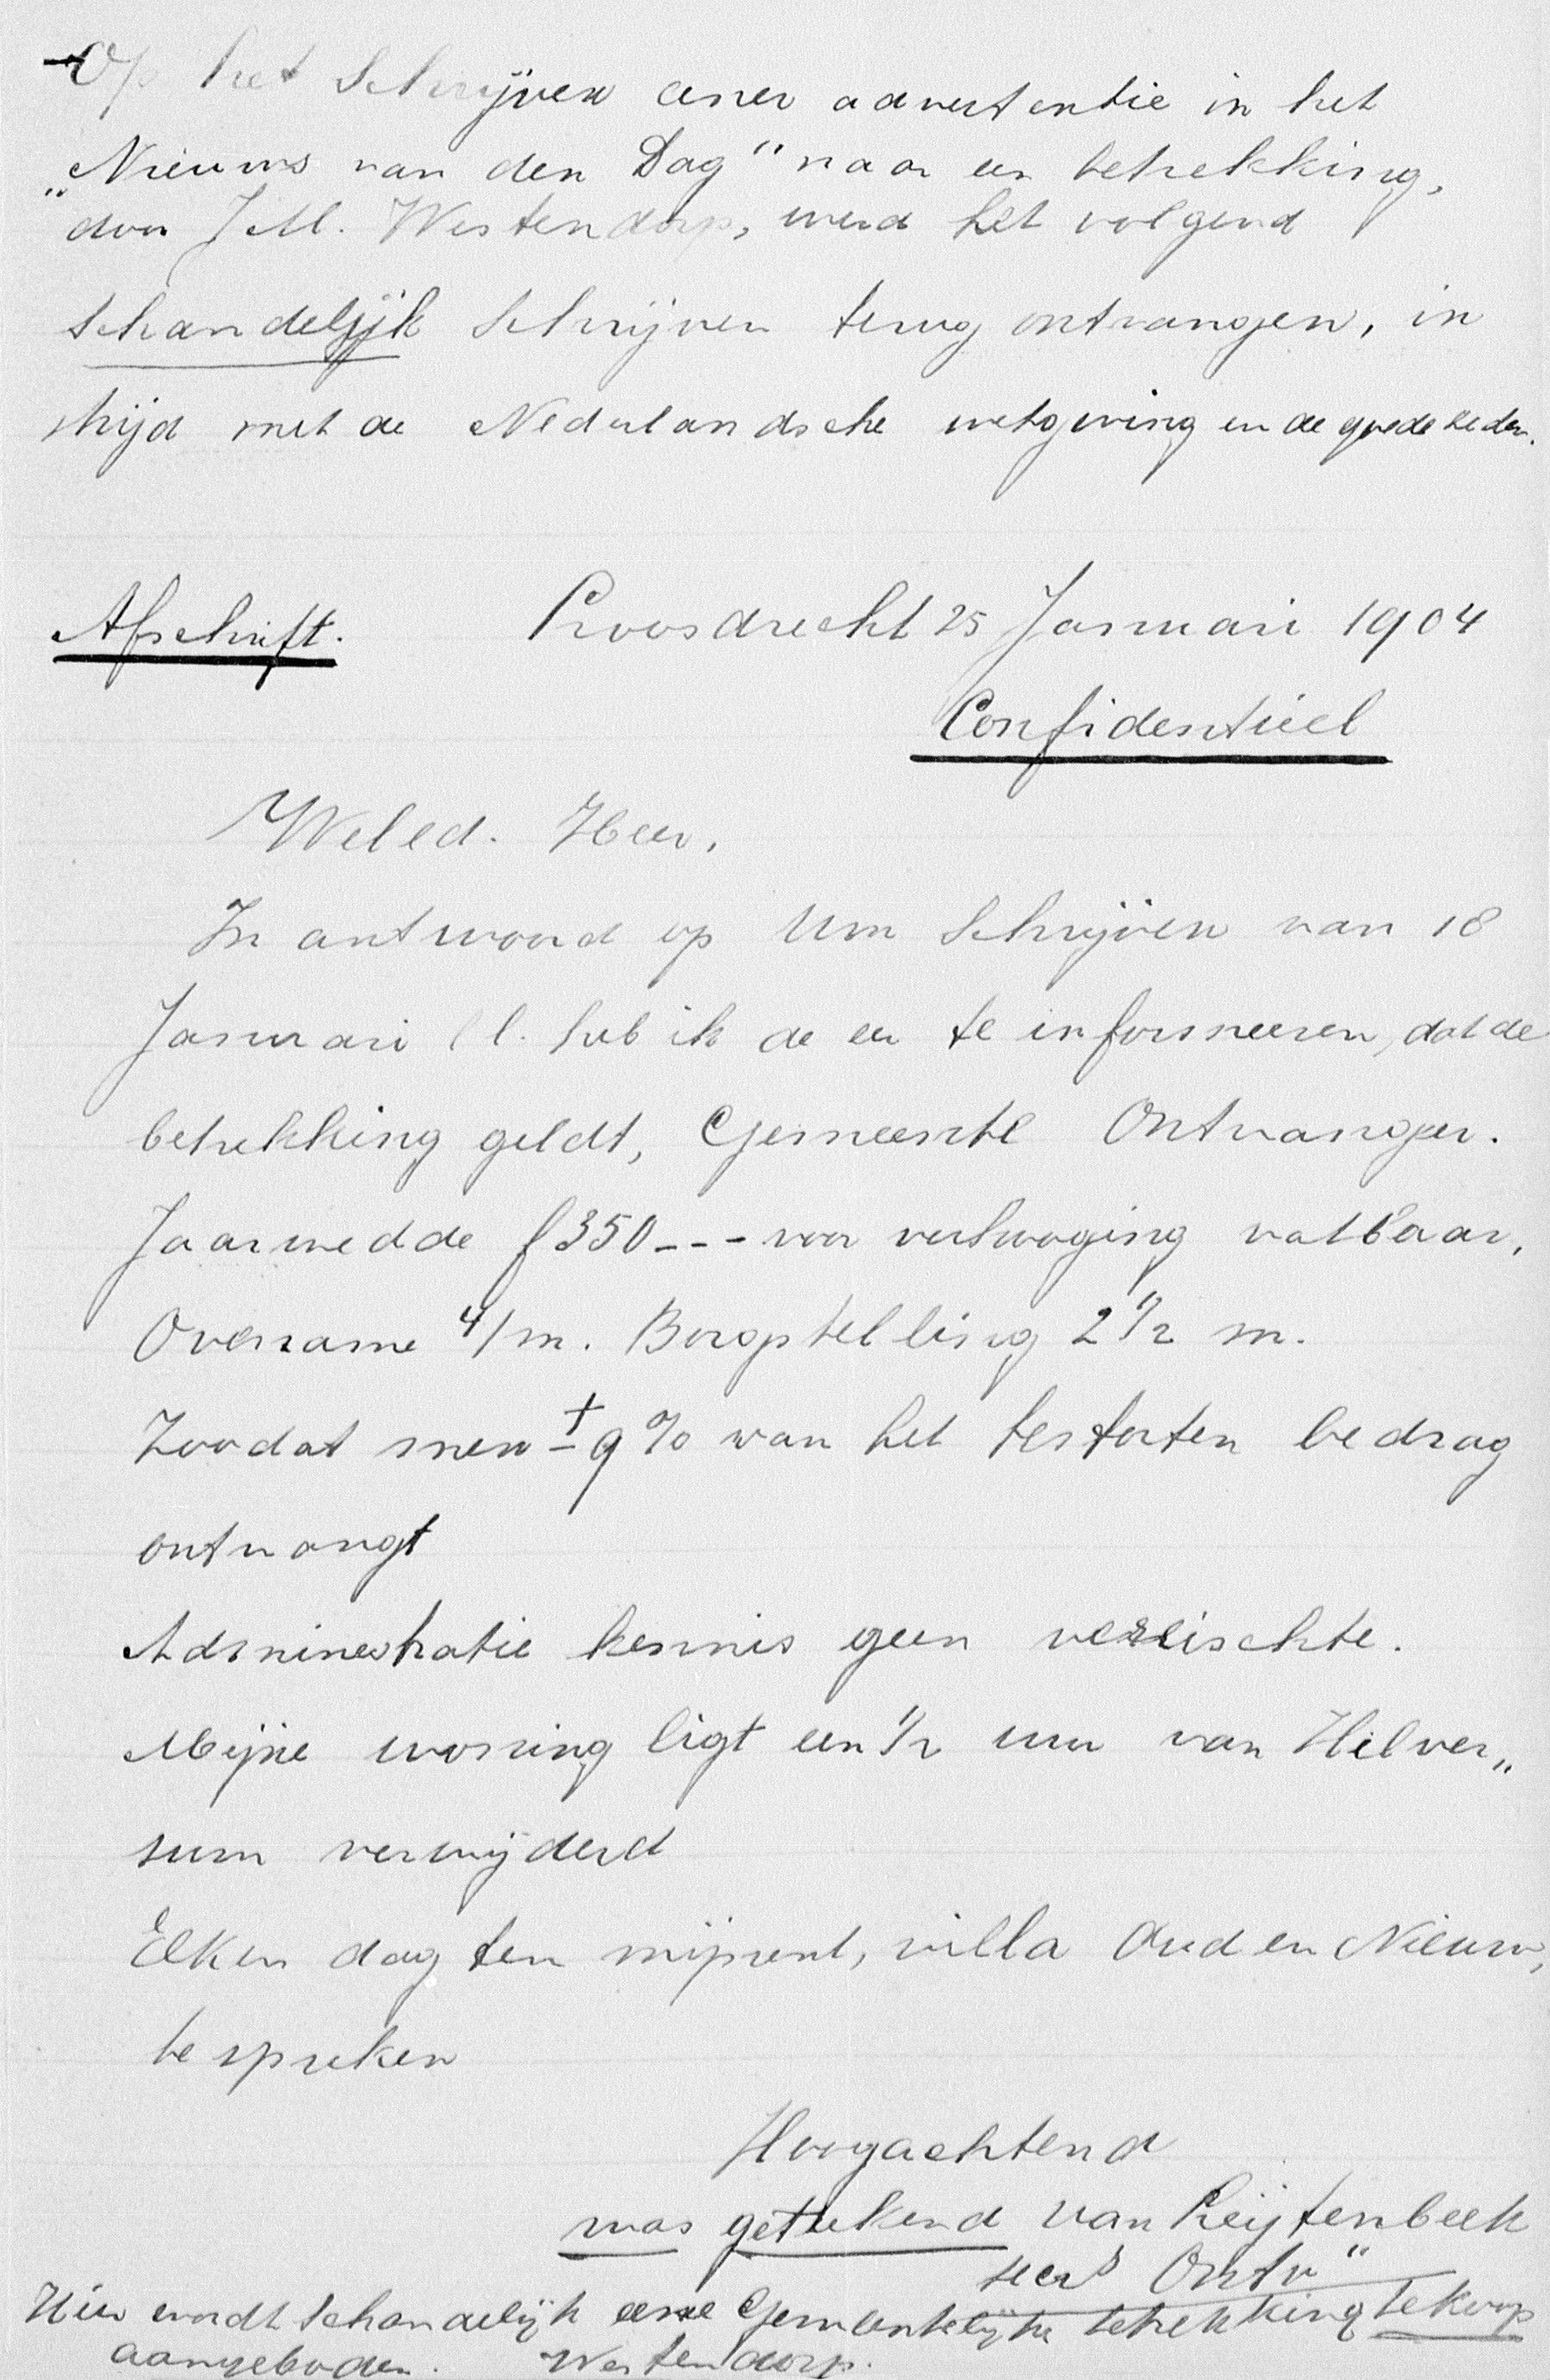 Op het Schrijven eener advertentie in het
„Nieuws van den Dag" naar een betrekking,
door J M. Westendorp, werd het volgend
schandelijk schrijven terug ontvangen, in
strijd met de Nederlandsche wetgeving en de goede zeden.
Afschrift. Loosdrecht 25 Januari 1904
Confidentieel
Weled. Heer,
In antwoord op Uw Schrijven van 18
Januari ll. heb ik de eer te informeeren, dat de
betrekking geldt, Gemeente Ontvanger.
Jaarwedde f 350 --- voor verhooging vatbaar,
Overname 4/m. Borgstelling 2 1/2 m.
Zoodat men ± 9 % van het bedrag
ontvangt
Adminestratie kennis geen vereischte.
Mijne woning ligt een 1/2 uur van Hilver„
sum verwijderd
Elken dag ten mijnent, villa Oud en Nieuw,
te spreken
Hoogachtend
was geteekend van
Secrs Ontv"
Hier wordt schandelijk eene Gemeentelijke betrekking te koop
aangeboden. Westendorp.